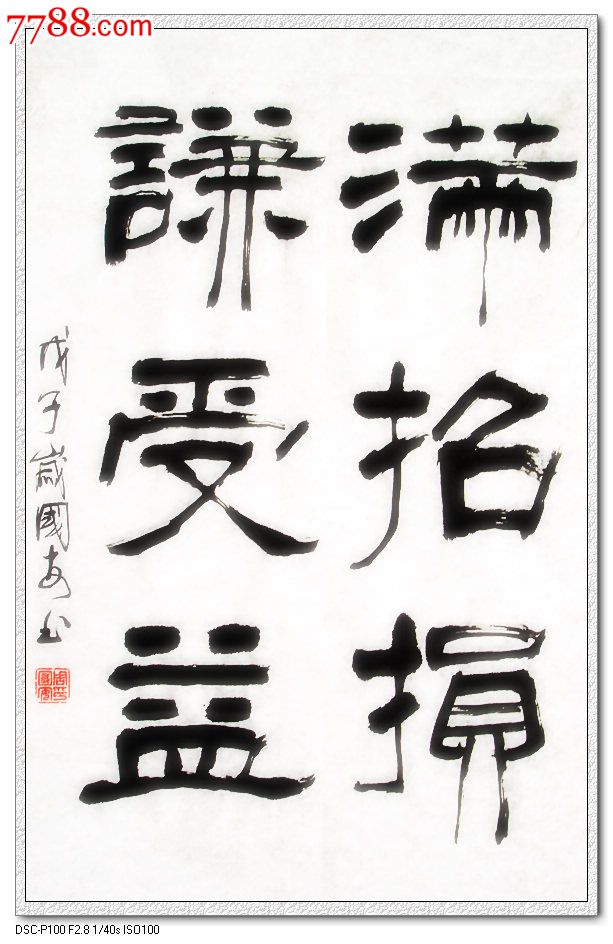 7788.com
满招損
謙受益
戊子歲國安书
DSC-P100 F2.8 1/40s ISO100